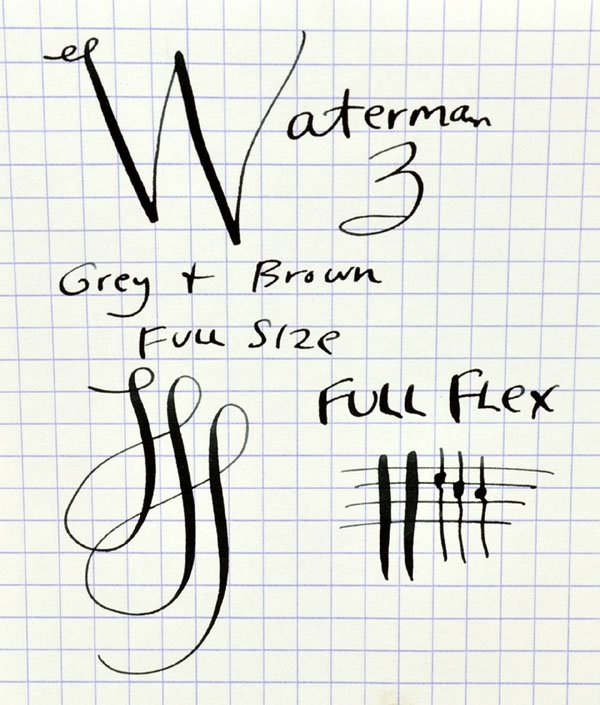 Waterman
3
Grey + Brown
Full Size
FULL FLex